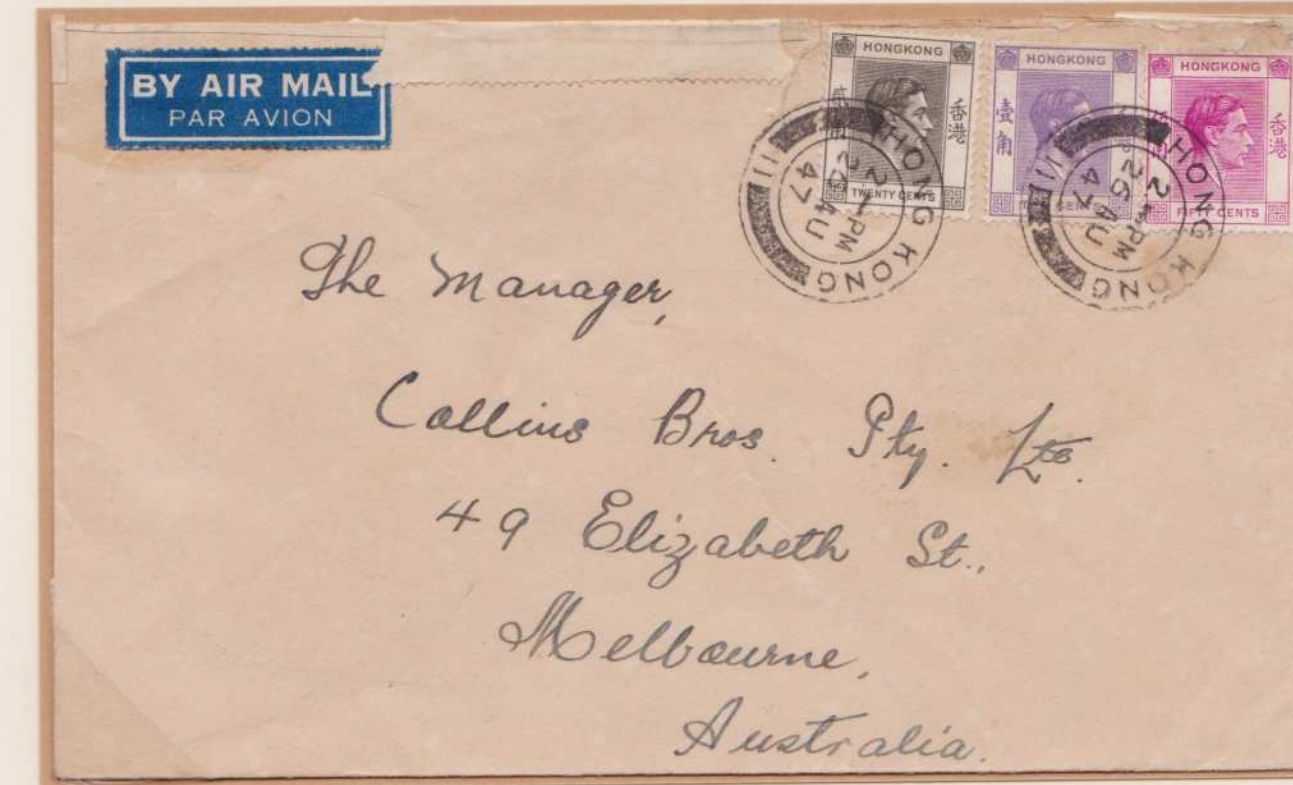 BY AIR MAIL
PAR AVION
HONGKONG
香港
TWENTY CENTS
HONGKONG
壹角
CENTS
HONGKONG
香港
FIFTY CENTS
HONG KONG
2 PM
AU
47
HONG KONG
2 PM
26 AU
47
The Manager,
Collins Bros. Pty. Ltd.
49 Elizabeth St.,
Melbourne,
Australia.